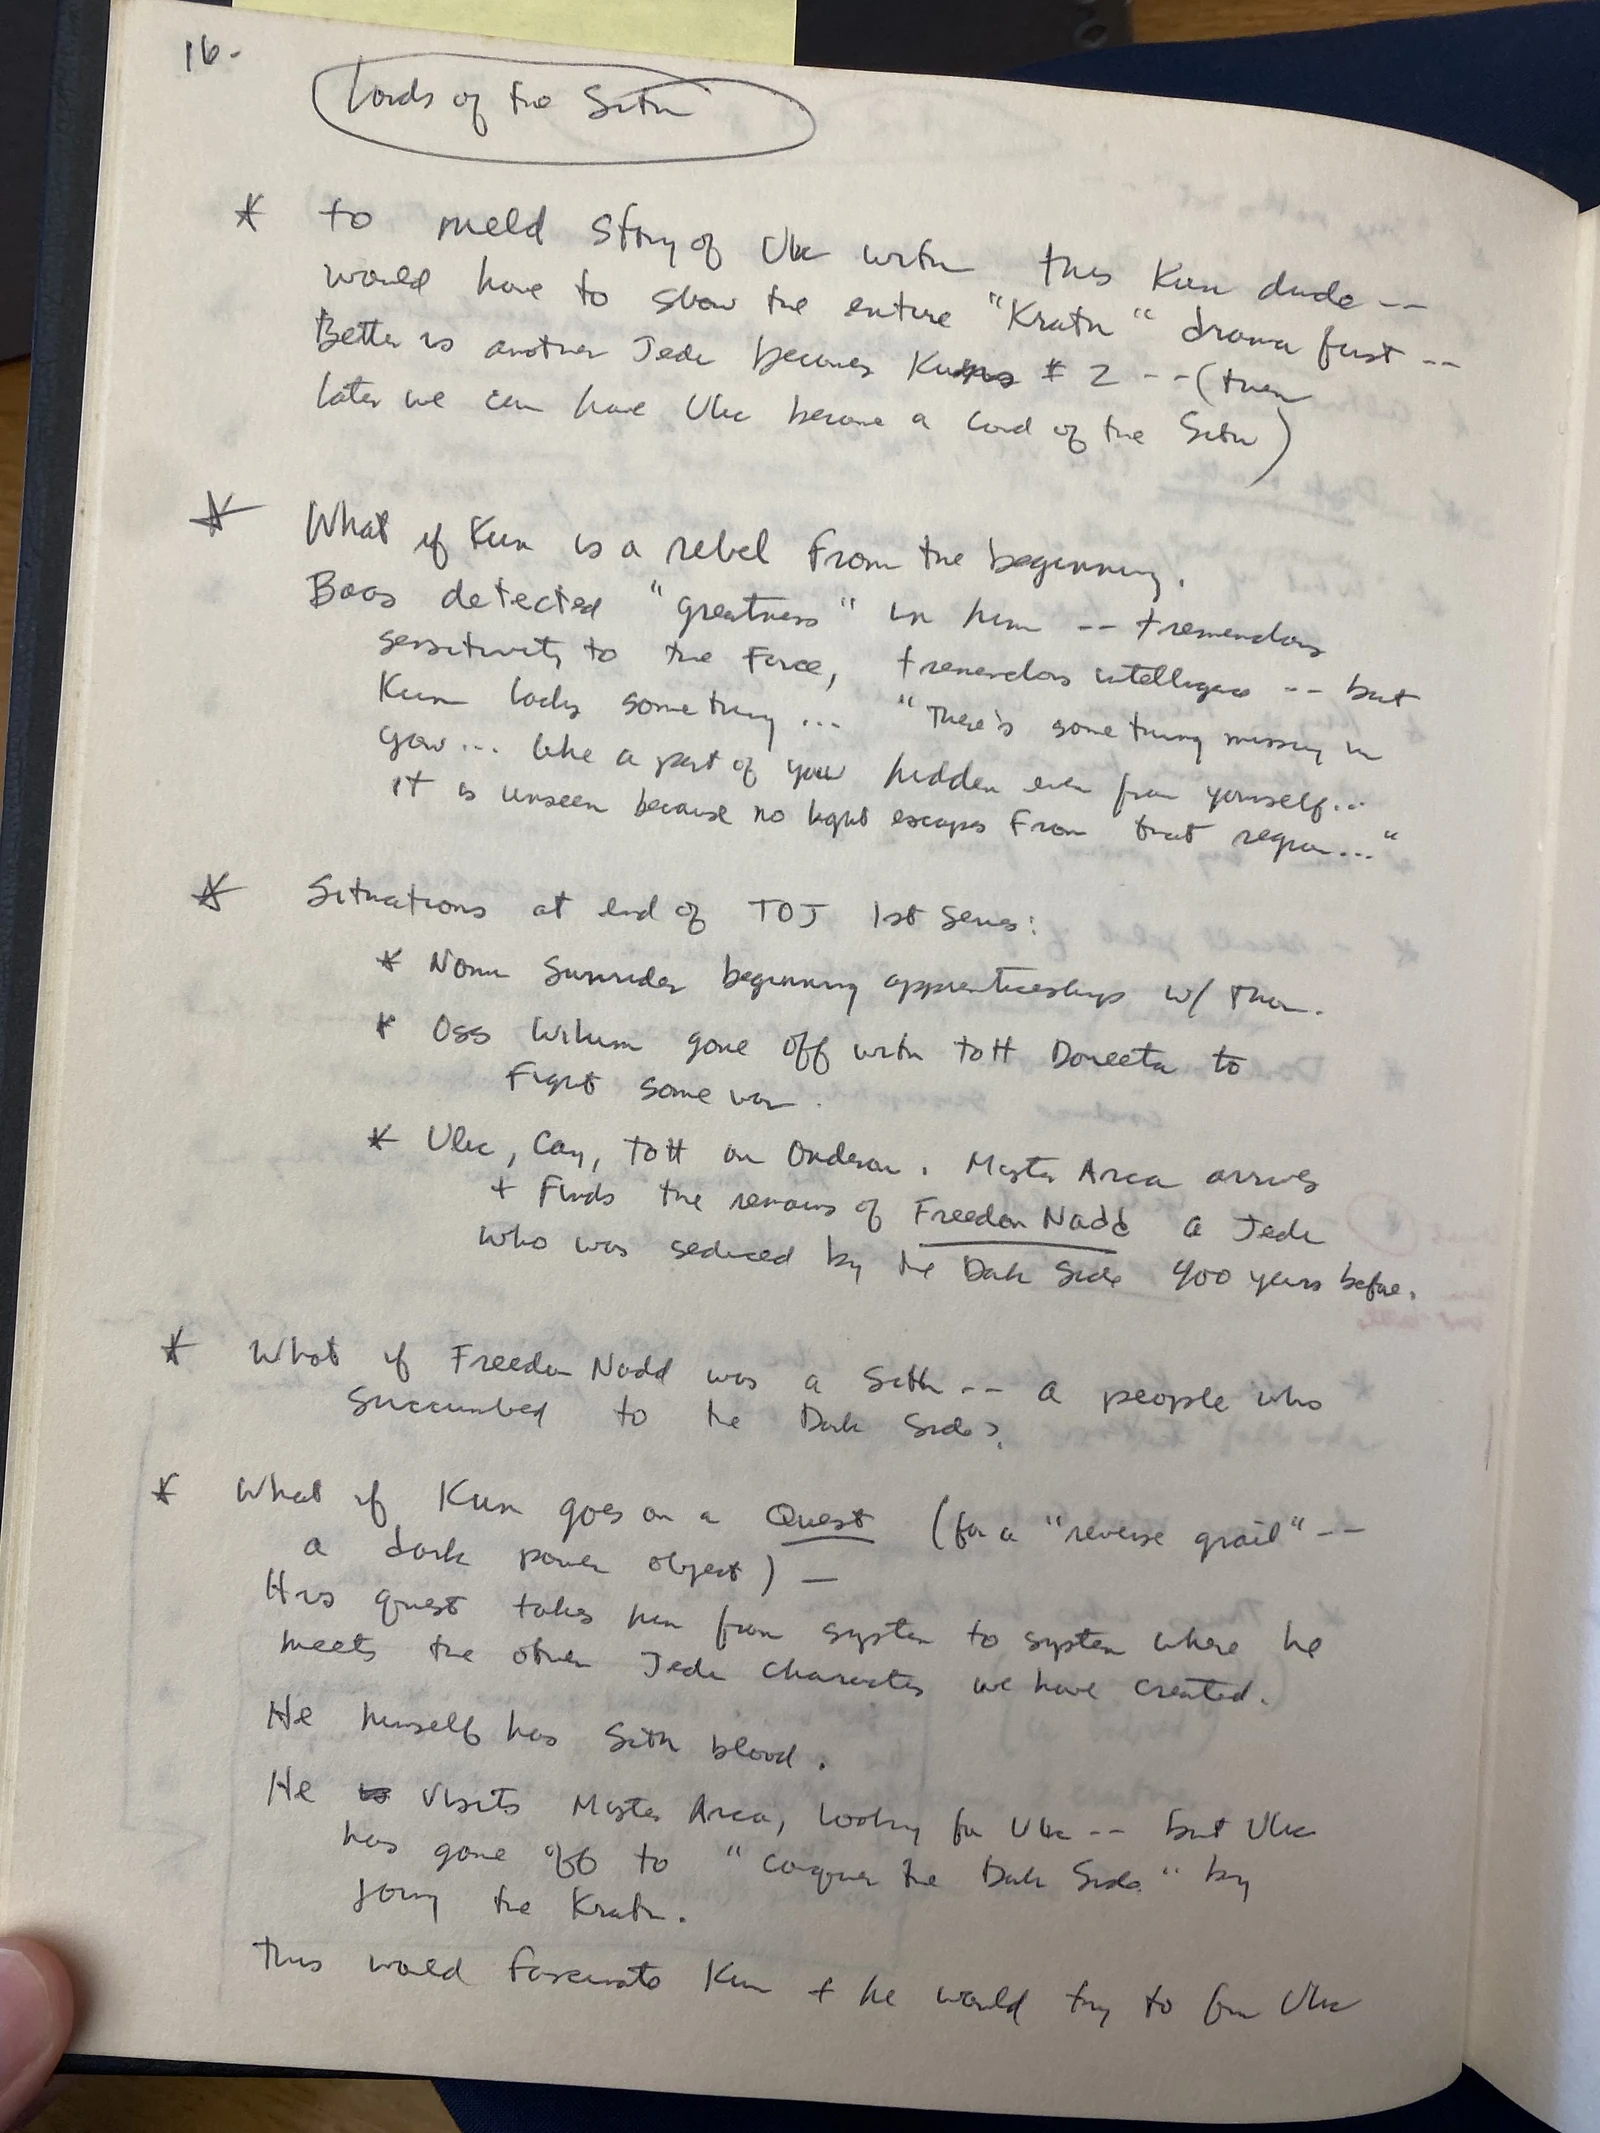 16-
Lords of the Sith
* to meld story of Ulic with this Kun dude --
would have to show the entire "Krath" drama first --
Better is another Jedi becomes Kun's # 2 -- (then
later we can have Ulic become a Lord of the Sith)
* What if Kun is a rebel from the beginning.
Baas detected "greatness" in him -- tremendous
sensitivity to the Force, tremendous intelligence -- but
Kun lacks something ... "There's something missing in
you ... like a part of you hidden even from yourself...
it is unseen because no light escapes from that region..."
* Situations at end of TOJ 1st Series:
* Nomi Sunrider beginning apprenticeship w/ Thon.
* Oss Wilum gone off with Tott Doneeta to
Fight some war.
* Ulic, Cay, Tott on Onderon. Master Arca arrives
+ Finds the remains of Freedon Nadd a Jedi
who was seduced by the Dark Side 400 years before.
* What if Freedon Nadd was a Sith -- a people who
succumbed to the Dark Side?
* What if Kun goes on a Quest (for a "reverse grail" --
a dark power object) —
His quest takes him from system to system where he
meets the other Jedi characters we have created.
He himself has Sith blood.
He visits Master Arca, looking for Ulic -- but Ulic
has gone off to "conquer the Dark Side" by
joing the Krath.
This would fascinate Kun + he would try to find Ulic